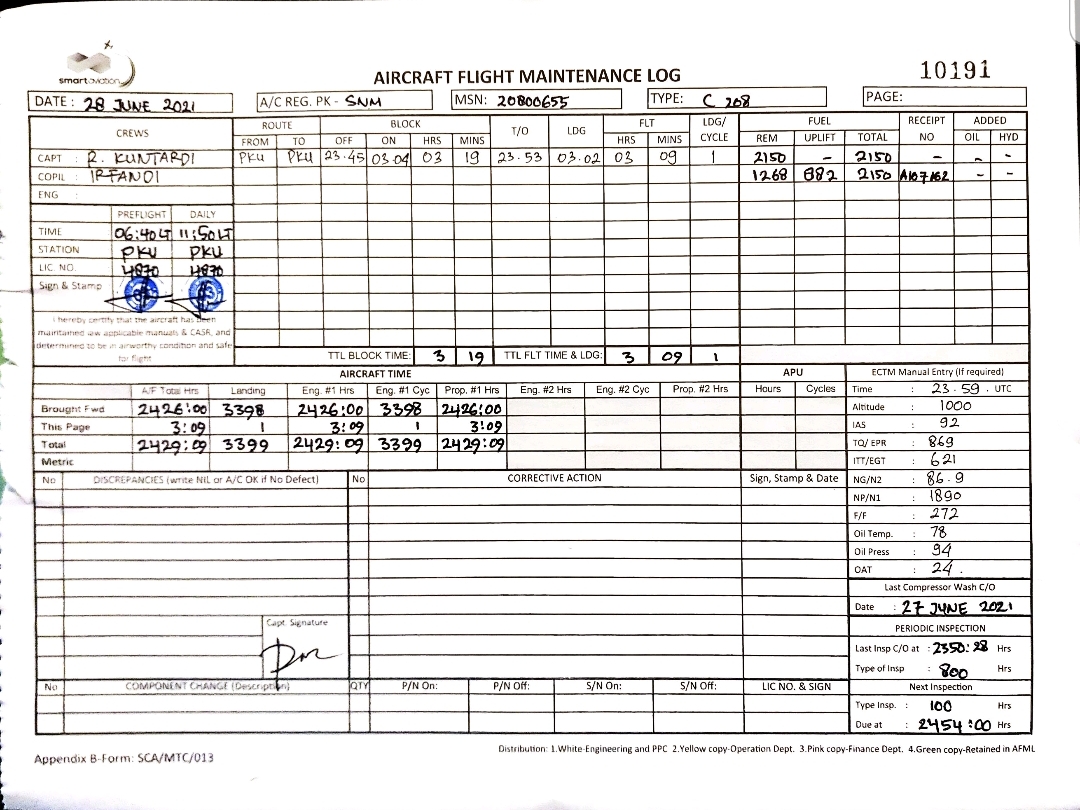 smart aviation
AIRCRAFT FLIGHT MAINTENANCE LOG
10191
DATE : 28 JUNE 2021 A/C REG. PK - SNM MSN: 20800655 TYPE: C 208 PAGE:
CREWS ROUTE BLOCK T/O LDG FLT LDG/ CYCLE FUEL RECEIPT NO ADDED
FROM TO OFF ON HRS MINS HRS MINS REM UPLIFT TOTAL OIL HYD
CAPT : R. KUNTARDI PKU PKU 23.45 03.04 03 19 23.53 03.02 03 09 1 2150 - 2150 - - -
COPIL : IRFANDI 1268 882 2150 A107162 - -
ENG :
PREFLIGHT DAILY
TIME 06:40 LT 11:50 LT
STATION PKU PKU
LIC NO. 4870 4870
Sign & Stamp
I hereby certify that the aircraft has been
maintained iaw applicable manuals & CASR, and
determined to be in airworthy condition and safe
for flight
TTL BLOCK TIME: 3 19 TTL FLT TIME & LDG: 3 09 1
AIRCRAFT TIME APU ECTM Manual Entry (If required)
A/F Total Hrs Landing Eng. #1 Hrs Eng. #1 Cyc Prop. #1 Hrs Eng. #2 Hrs Eng. #2 Cyc Prop. #2 Hrs Hours Cycles Time : 23.59 . UTC
Brought Fwd 2426:00 3398 2426:00 3398 2426:00 Altitude : 1000
This Page 3:09 1 3:09 1 3:09 IAS : 92
Total 2429:09 3399 2429:09 3399 2429:09 TQ/ EPR : 869
Metric ITT/EGT : 621
No DISCREPANCIES (write NIL or A/C OK if No Defect) No CORRECTIVE ACTION Sign, Stamp & Date NG/N2 : 86.9
NP/N1 : 1890
F/F : 272
Oil Temp. : 78
Oil Press : 94
OAT : 24 .
Last Compressor Wash C/O
Date : 27 JUNE 2021
Capt. Signature
PERIODIC INSPECTION
Last Insp C/O at : 2350:28 Hrs
Type of Insp : 800 Hrs
No COMPONENT CHANGE (Description) QTY P/N On: P/N Off: S/N On: S/N Off: LIC NO. & SIGN Next Inspection
Type Insp. : 100 Hrs
Due at : 2454:00 Hrs
Appendix B-Form: SCA/MTC/013
Distribution: 1.White-Engineering and PPC 2.Yellow copy-Operation Dept. 3.Pink copy-Finance Dept. 4.Green copy-Retained in AFML